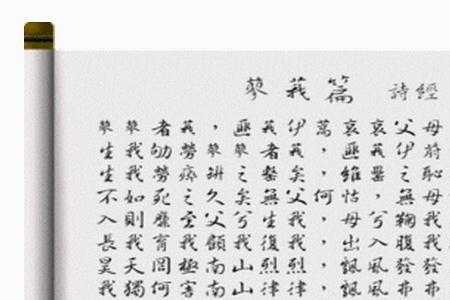 蓼莪篇 詩經
蓼蓼者莪，匪莪伊蒿，哀哀父母
生我劬勞蓼蓼者莪，匪莪伊蔚
生我勞瘁缾之罄矣，維罍之恥
不如死之久矣無父何怙，無母
入則靡 父兮生我，母兮鞠我
長我育我顧我復我，出入腹我
昊天罔極南山烈烈，飄風發發
我獨何害南山律律，飄風弗弗